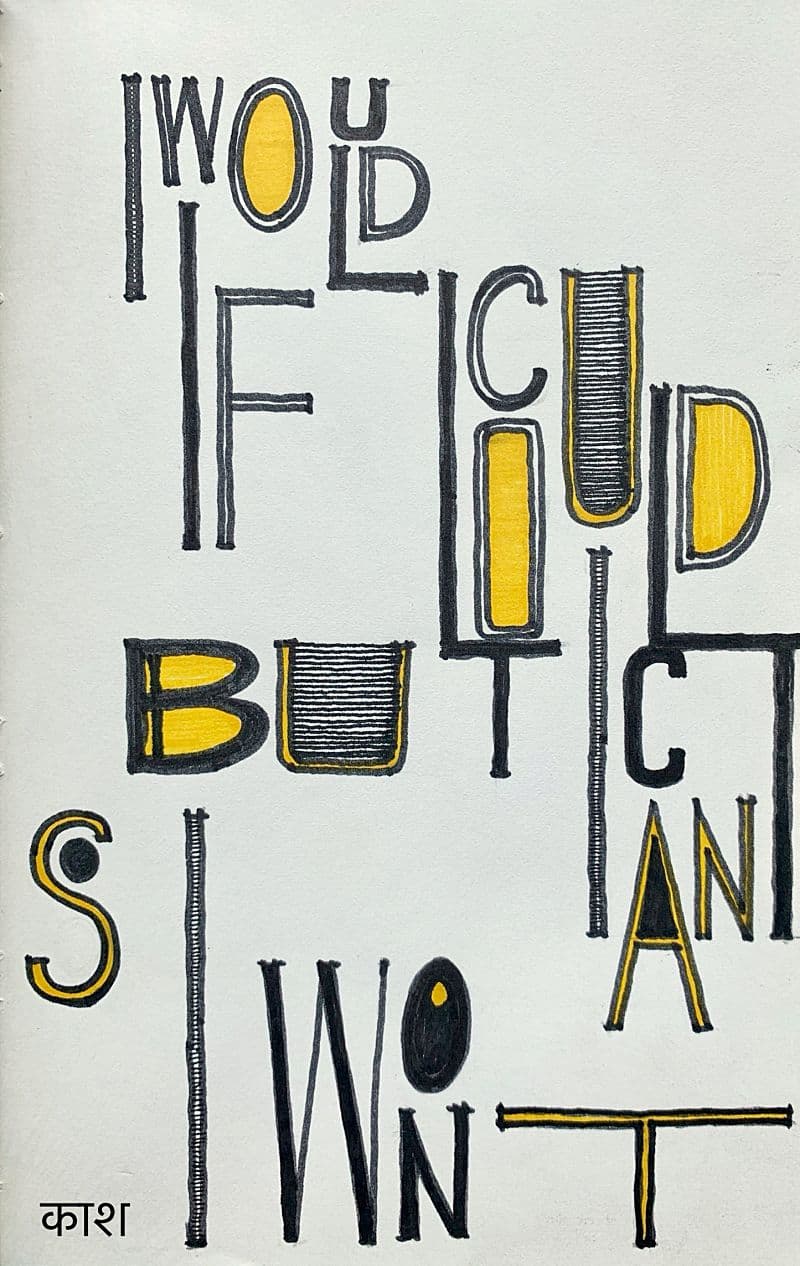 I WOULD
IF I COULD
BUT I CANT
SO I WONT
काश